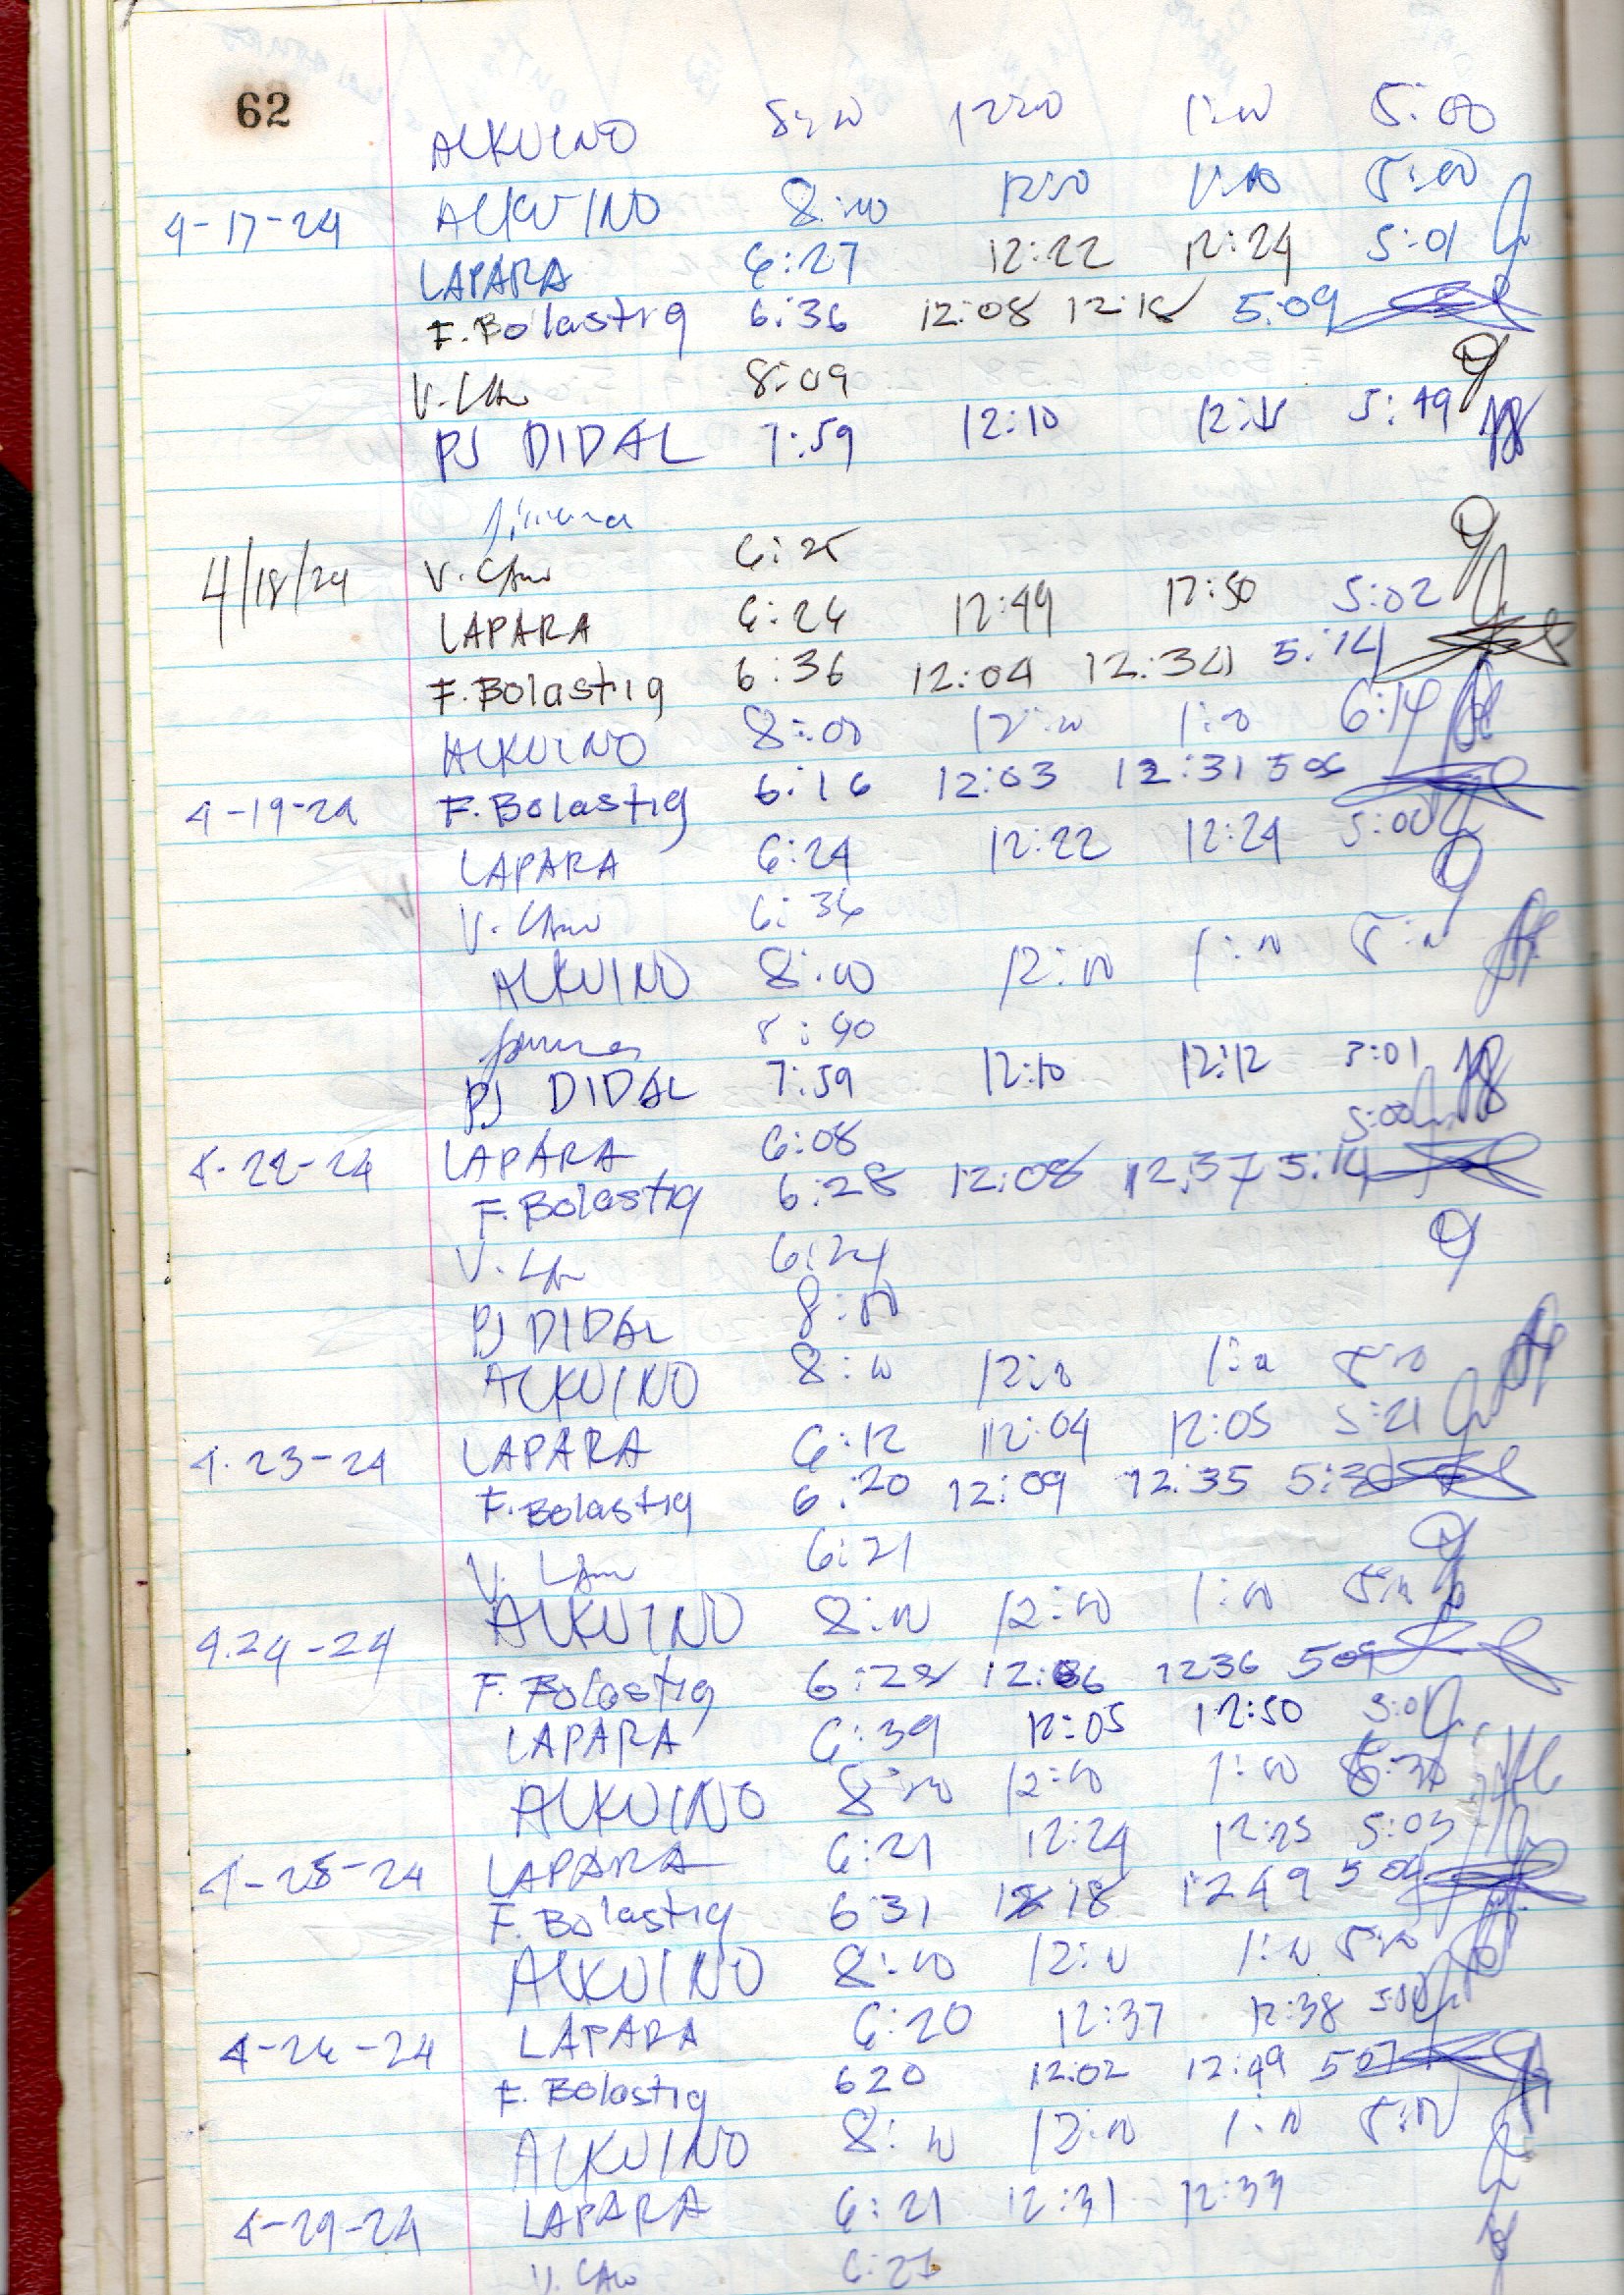 62
ALKUINO 8:00 12:00 1:00 5:00
4-17-24 ALKUINO 8:00 12:00 1:00 5:00
LAPARA 6:27 12:22 12:24 5:01
F. Bolastig 6:36 12:08 12:18 5:09
V. 8:09
PJ DIDAL 7:59 12:10 5:49
4/18/24 V. 6:25
LAPARA 6:26 12:49 12:50 5:02
F. Bolastig 6:36 12:04 12:34 5:14
ALKUINO 8:00 12:00 1:00 6:14
4-19-24 F. Bolastig 6:16 12:03 12:31 506
LAPARA 6:24 12:22 12:24 5:00
V. 6:36
ALKUINO 8:00 12:00 1:00 5:00
8:40
PJ DIDAL 7:59 12:10 12:12 5:01
4-22-24 LAPARA 6:08 5:00
F. Bolastig 6:28 12:08 12:37 5:14
V. 6:24
PJ DIDAL 8:00
ALKUINO 8:00 12:00 1:00 5:00
4-23-24 LAPARA 6:12 12:04 12:05 5:21
F. Bolastig 6:20 12:09 12:35
V. 6:21
ALKUINO 8:00 12:00 1:00 5:00
4.24-24 F. Bolastig 6:28 12:06 1236 509
LAPARA 6:39 12:05 12:50 5:01
ALKUINO 8:00 12:00 1:00
4-25-24 LAPARA 6:21 12:24 12:25 5:03
F. Bolastig 631 12 18 1249 504
ALKUINO 8:00 12:00 1:00 5:00
4-26-24 LAPARA 6:20 12:37 12:38 5:00
F. Bolastig 620 12:02 12:49 507
ALKUINO 8:00 12:00 1:00 5:00
4-29-24 LAPARA 6:21 12:31 12:33
V. 6:27